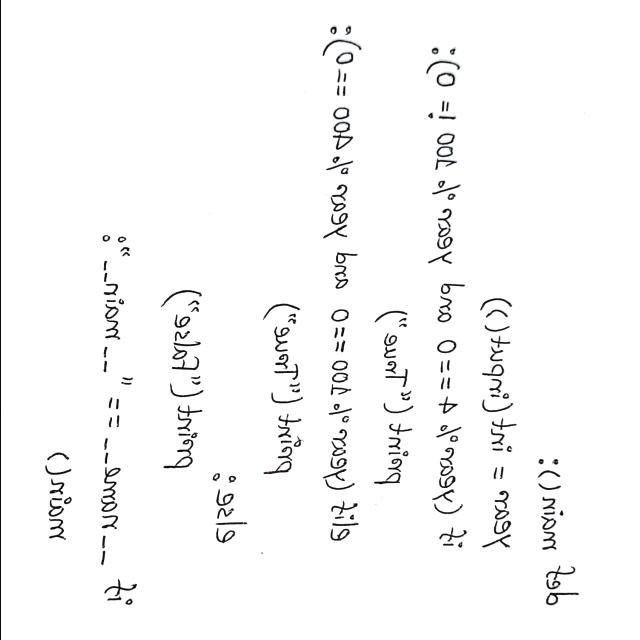 def main():
year = int(input())
if (year % 4 == 0 and year % 100 != 0):
print("True")
elif (year % 100 == 0 and year % 400 == 0):
print("True")
else:
print("False")
if __name__ == "__main__":
main()